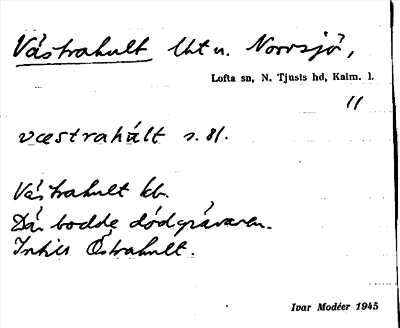 Västrahult Uht u. Norrsjö,
Lofta sn, N. Tjusts hd, Kalm. l.
11
væstrahált s. 81.
Västrahult kb.
Där bodde dödgrävaren.
Intill Östrahult.
Ivar Modéer 1945